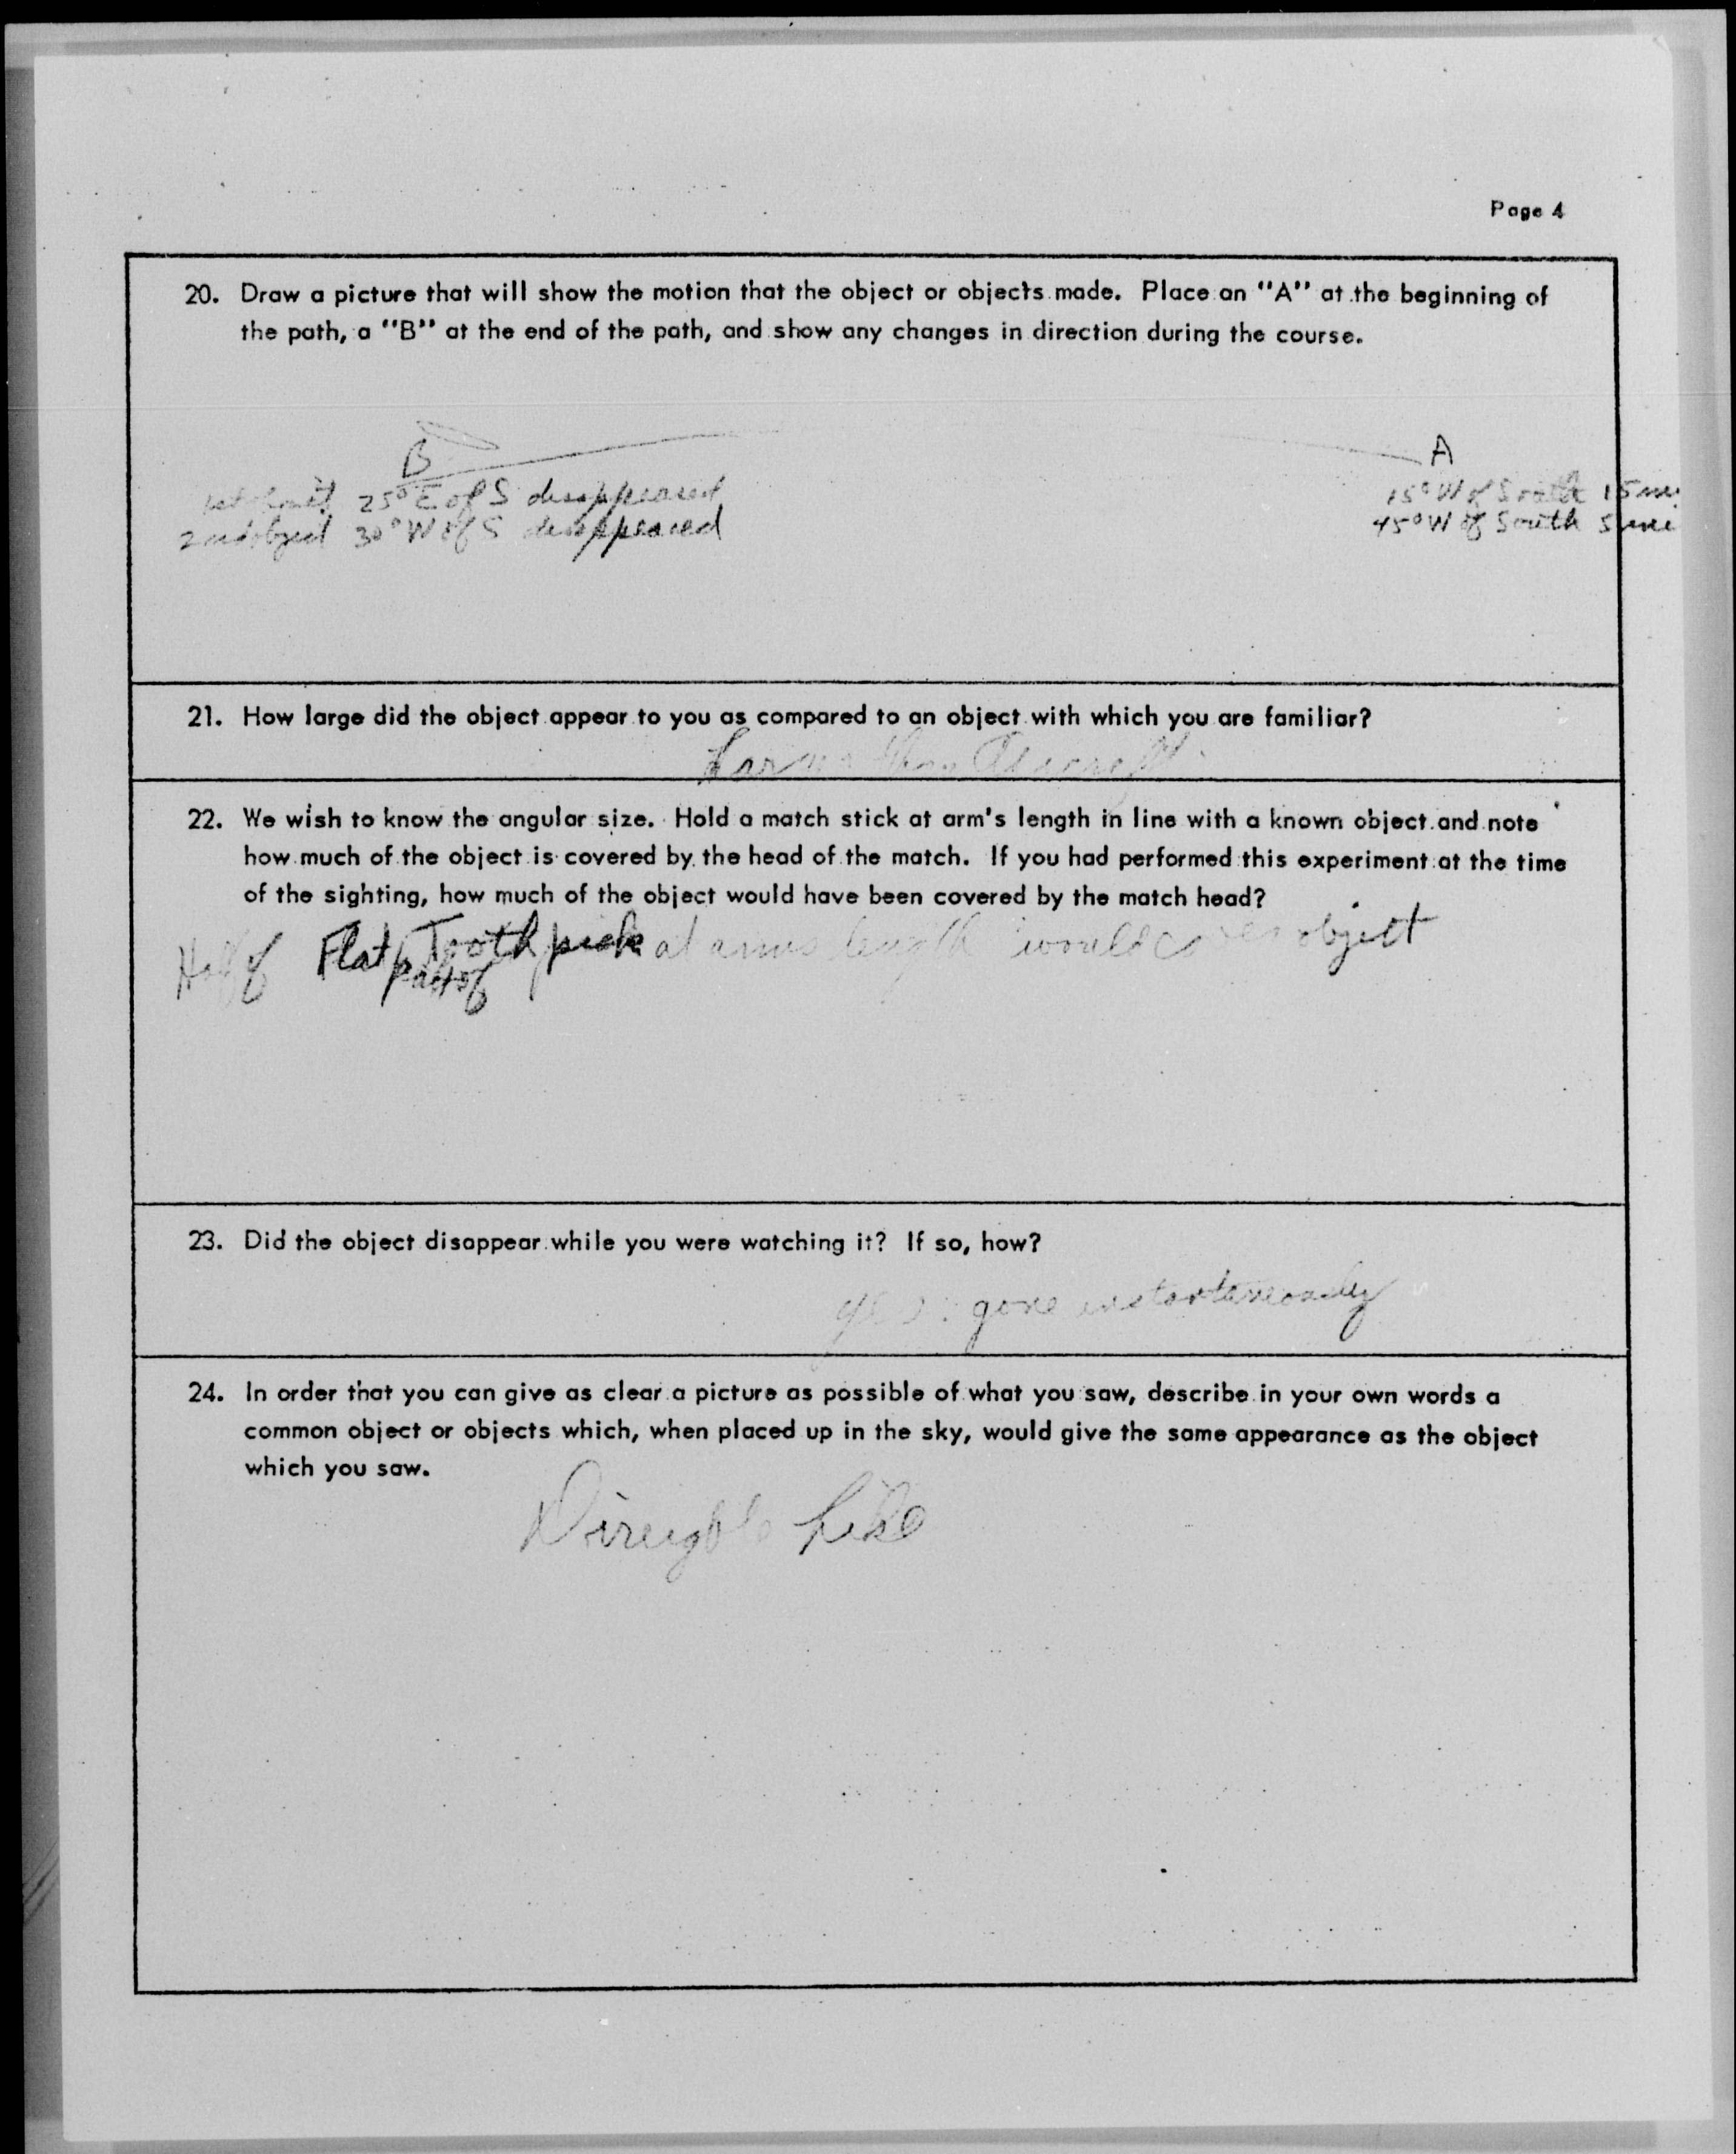 Page 4
20. Draw a picture that will show the motion that the object or objects made. Place an "A" at the beginning of
the path, a "B" at the end of the path, and show any changes in direction during the course.
B
A
25° E of S disappeared
15° W of South 15 mi
2nd object 30° W of S disappeared
45° W of South 5 mi
21. How large did the object appear to you as compared to an object with which you are familiar?
Larger than Aircraft
22. We wish to know the angular size. Hold a match stick at arm's length in line with a known object and note
how much of the object is covered by the head of the match. If you had performed this experiment at the time
of the sighting, how much of the object would have been covered by the match head?
Half of Flat Toothpick at arms length would cover object
part of
23. Did the object disappear while you were watching it? If so, how?
yes: gone instantaneously
24. In order that you can give as clear a picture as possible of what you saw, describe in your own words a
common object or objects which, when placed up in the sky, would give the same appearance as the object
which you saw.
Direigble Like